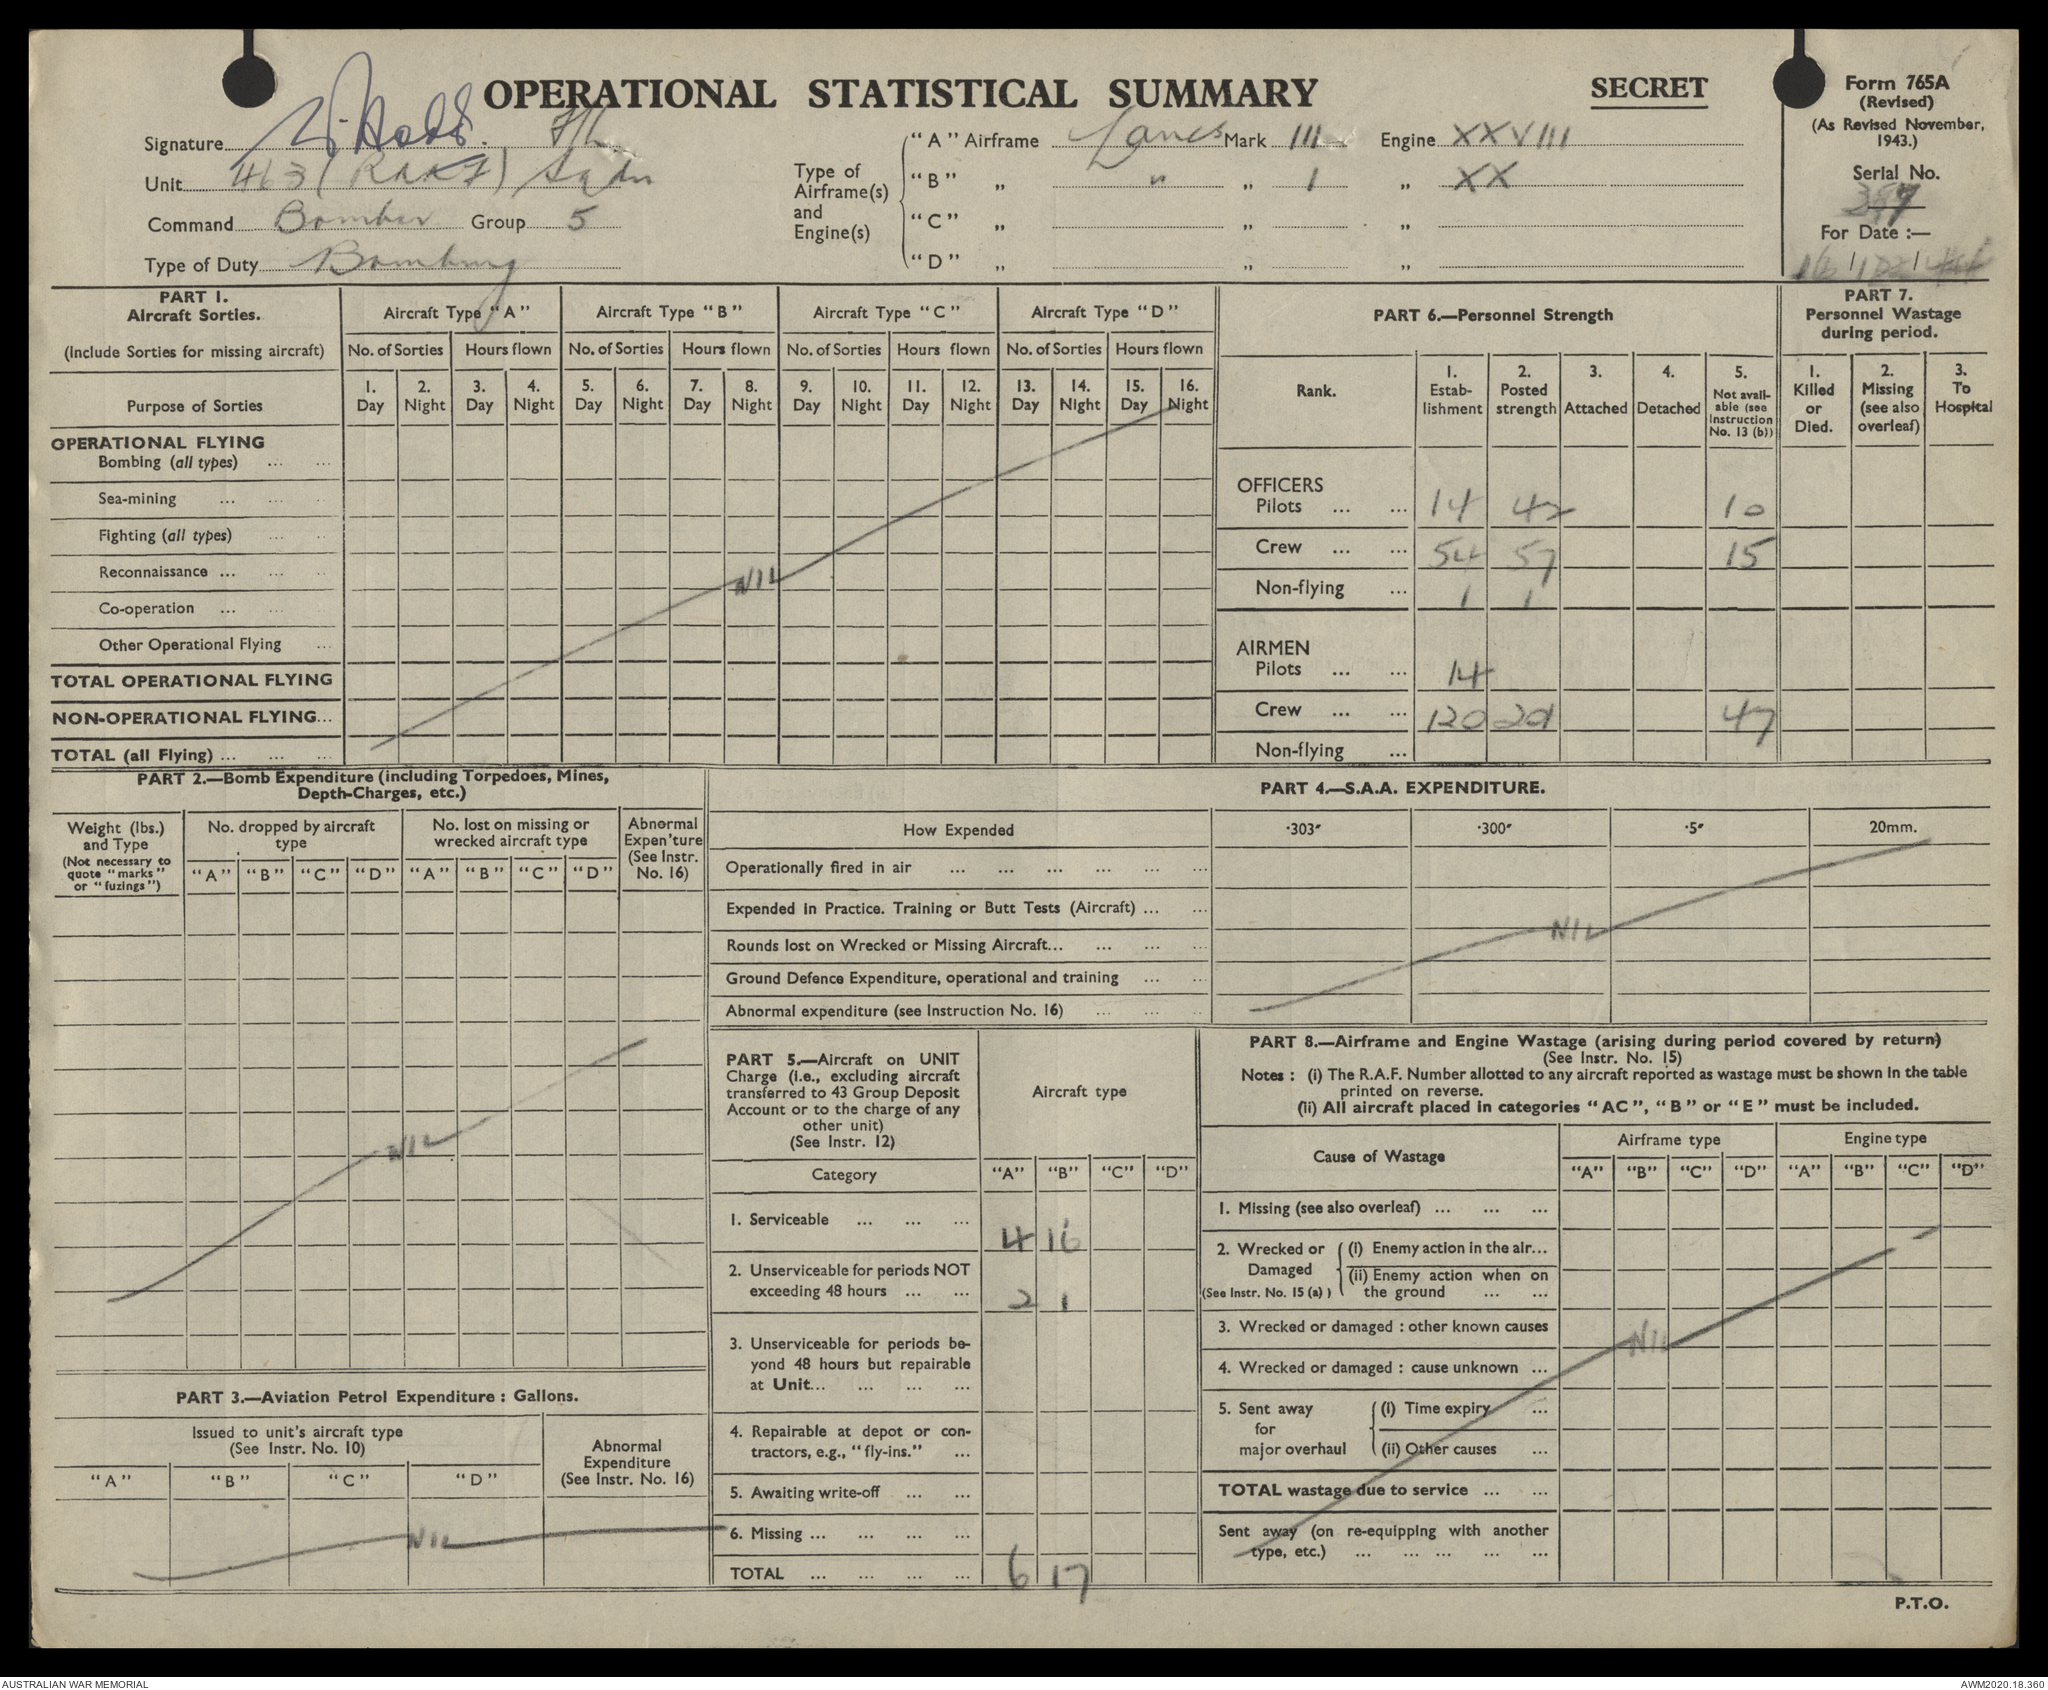 OPERATIONAL STATISTICAL SUMMARY
SECRET
Form 765A
(Revised)
(As Revised November,
1943.)
Serial No.
For Date :—
Signature
Unit 463 (RAAF) Sqdn
Command Bomber Group 5
Type of Duty Bombing
Type of
Airframe(s)
and
Engine(s)
"A" Airframe Lancs Mark III Engine XXVIII
"B" „ " „ 1 „ XX
"C" „ „ „
"D" „ „ „
PART 1.
Aircraft Sorties.
(Include Sorties for missing aircraft)
Purpose of Sorties
Aircraft Type "A" Aircraft Type "B" Aircraft Type "C" Aircraft Type "D"
No. of Sorties Hours flown No. of Sorties Hours flown No. of Sorties Hours flown No. of Sorties Hours flown
1. 2. 3. 4. 5. 6. 7. 8. 9. 10. 11. 12. 13. 14. 15. 16.
Day Night Day Night Day Night Day Night Day Night Day Night Day Night Day Night
OPERATIONAL FLYING
Bombing (all types) ... ...
Sea-mining ... ... ..
Fighting (all types) ... ..
Reconnaissance ... ... ..
NIL
Co-operation ... ... ..
Other Operational Flying ...
TOTAL OPERATIONAL FLYING
NON-OPERATIONAL FLYING...
TOTAL (all Flying) ... ... ...
PART 6.—Personnel Strength
Rank.
1. Estab-lishment
2. Posted strength
3. Attached
4. Detached
5. Not avail-able (see Instruction No. 13 (b))
OFFICERS
Pilots ... ... 14 42 10
Crew ... ... 54 57 15
Non-flying ... 1 1
AIRMEN
Pilots ... ... 14
Crew ... ... 120 201 47
Non-flying ...
PART 7.
Personnel Wastage
during period.
1. Killed or Died.
2. Missing (see also overleaf)
3. To Hospital
PART 2.—Bomb Expenditure (including Torpedoes, Mines,
Depth-Charges, etc.)
Weight (lbs.)
and Type
(Not necessary to
quote "marks"
or "fuzings")
No. dropped by aircraft
type
No. lost on missing or
wrecked aircraft type
Abnormal
Expen'ture
(See Instr.
No. 16)
"A" "B" "C" "D" "A" "B" "C" "D"
NIL
PART 3.—Aviation Petrol Expenditure : Gallons.
Issued to unit's aircraft type
(See Instr. No. 10)
Abnormal
Expenditure
(See Instr. No. 16)
"A" "B" "C" "D"
NIL
PART 4.—S.A.A. EXPENDITURE.
How Expended ·303" ·300" ·5" 20mm.
Operationally fired in air ... ... ... ... ... ...
Expended in Practice. Training or Butt Tests (Aircraft) ... ...
NIL
Rounds lost on Wrecked or Missing Aircraft... ... ... ...
Ground Defence Expenditure, operational and training ... ...
Abnormal expenditure (see Instruction No. 16) ... ... ..
PART 5.—Aircraft on UNIT
Charge (i.e., excluding aircraft
transferred to 43 Group Deposit
Account or to the charge of any
other unit)
(See Instr. 12)
Aircraft type
Category "A" "B" "C" "D"
1. Serviceable ... ... ... 4 16
2. Unserviceable for periods NOT
exceeding 48 hours ... ... 2 1
3. Unserviceable for periods be-
yond 48 hours but repairable
at Unit... ... ... ...
4. Repairable at depot or con-
tractors, e.g., "fly-ins." ...
5. Awaiting write-off ... ...
6. Missing ... ... ... ...
TOTAL ... ... ... ... 6 17
PART 8.—Airframe and Engine Wastage (arising during period covered by return)
(See Instr. No. 15)
Notes : (i) The R.A.F. Number allotted to any aircraft reported as wastage must be shown in the table
printed on reverse.
(ii) All aircraft placed in categories "AC", "B" or "E" must be included.
Cause of Wastage
Airframe type Engine type
"A" "B" "C" "D" "A" "B" "C" "D"
1. Missing (see also overleaf) ... ... ...
2. Wrecked or Damaged (See Instr. No. 15 (a) )
(i) Enemy action in the air...
(ii) Enemy action when on
the ground ... ...
3. Wrecked or damaged : other known causes
NIL
4. Wrecked or damaged : cause unknown ...
5. Sent away
for
major overhaul
(i) Time expiry ...
(ii) Other causes ...
TOTAL wastage due to service ... ...
Sent away (on re-equipping with another
type, etc.) ... ... ... ... ...
P.T.O.
AUSTRALIAN WAR MEMORIAL
AWM2020.18.360